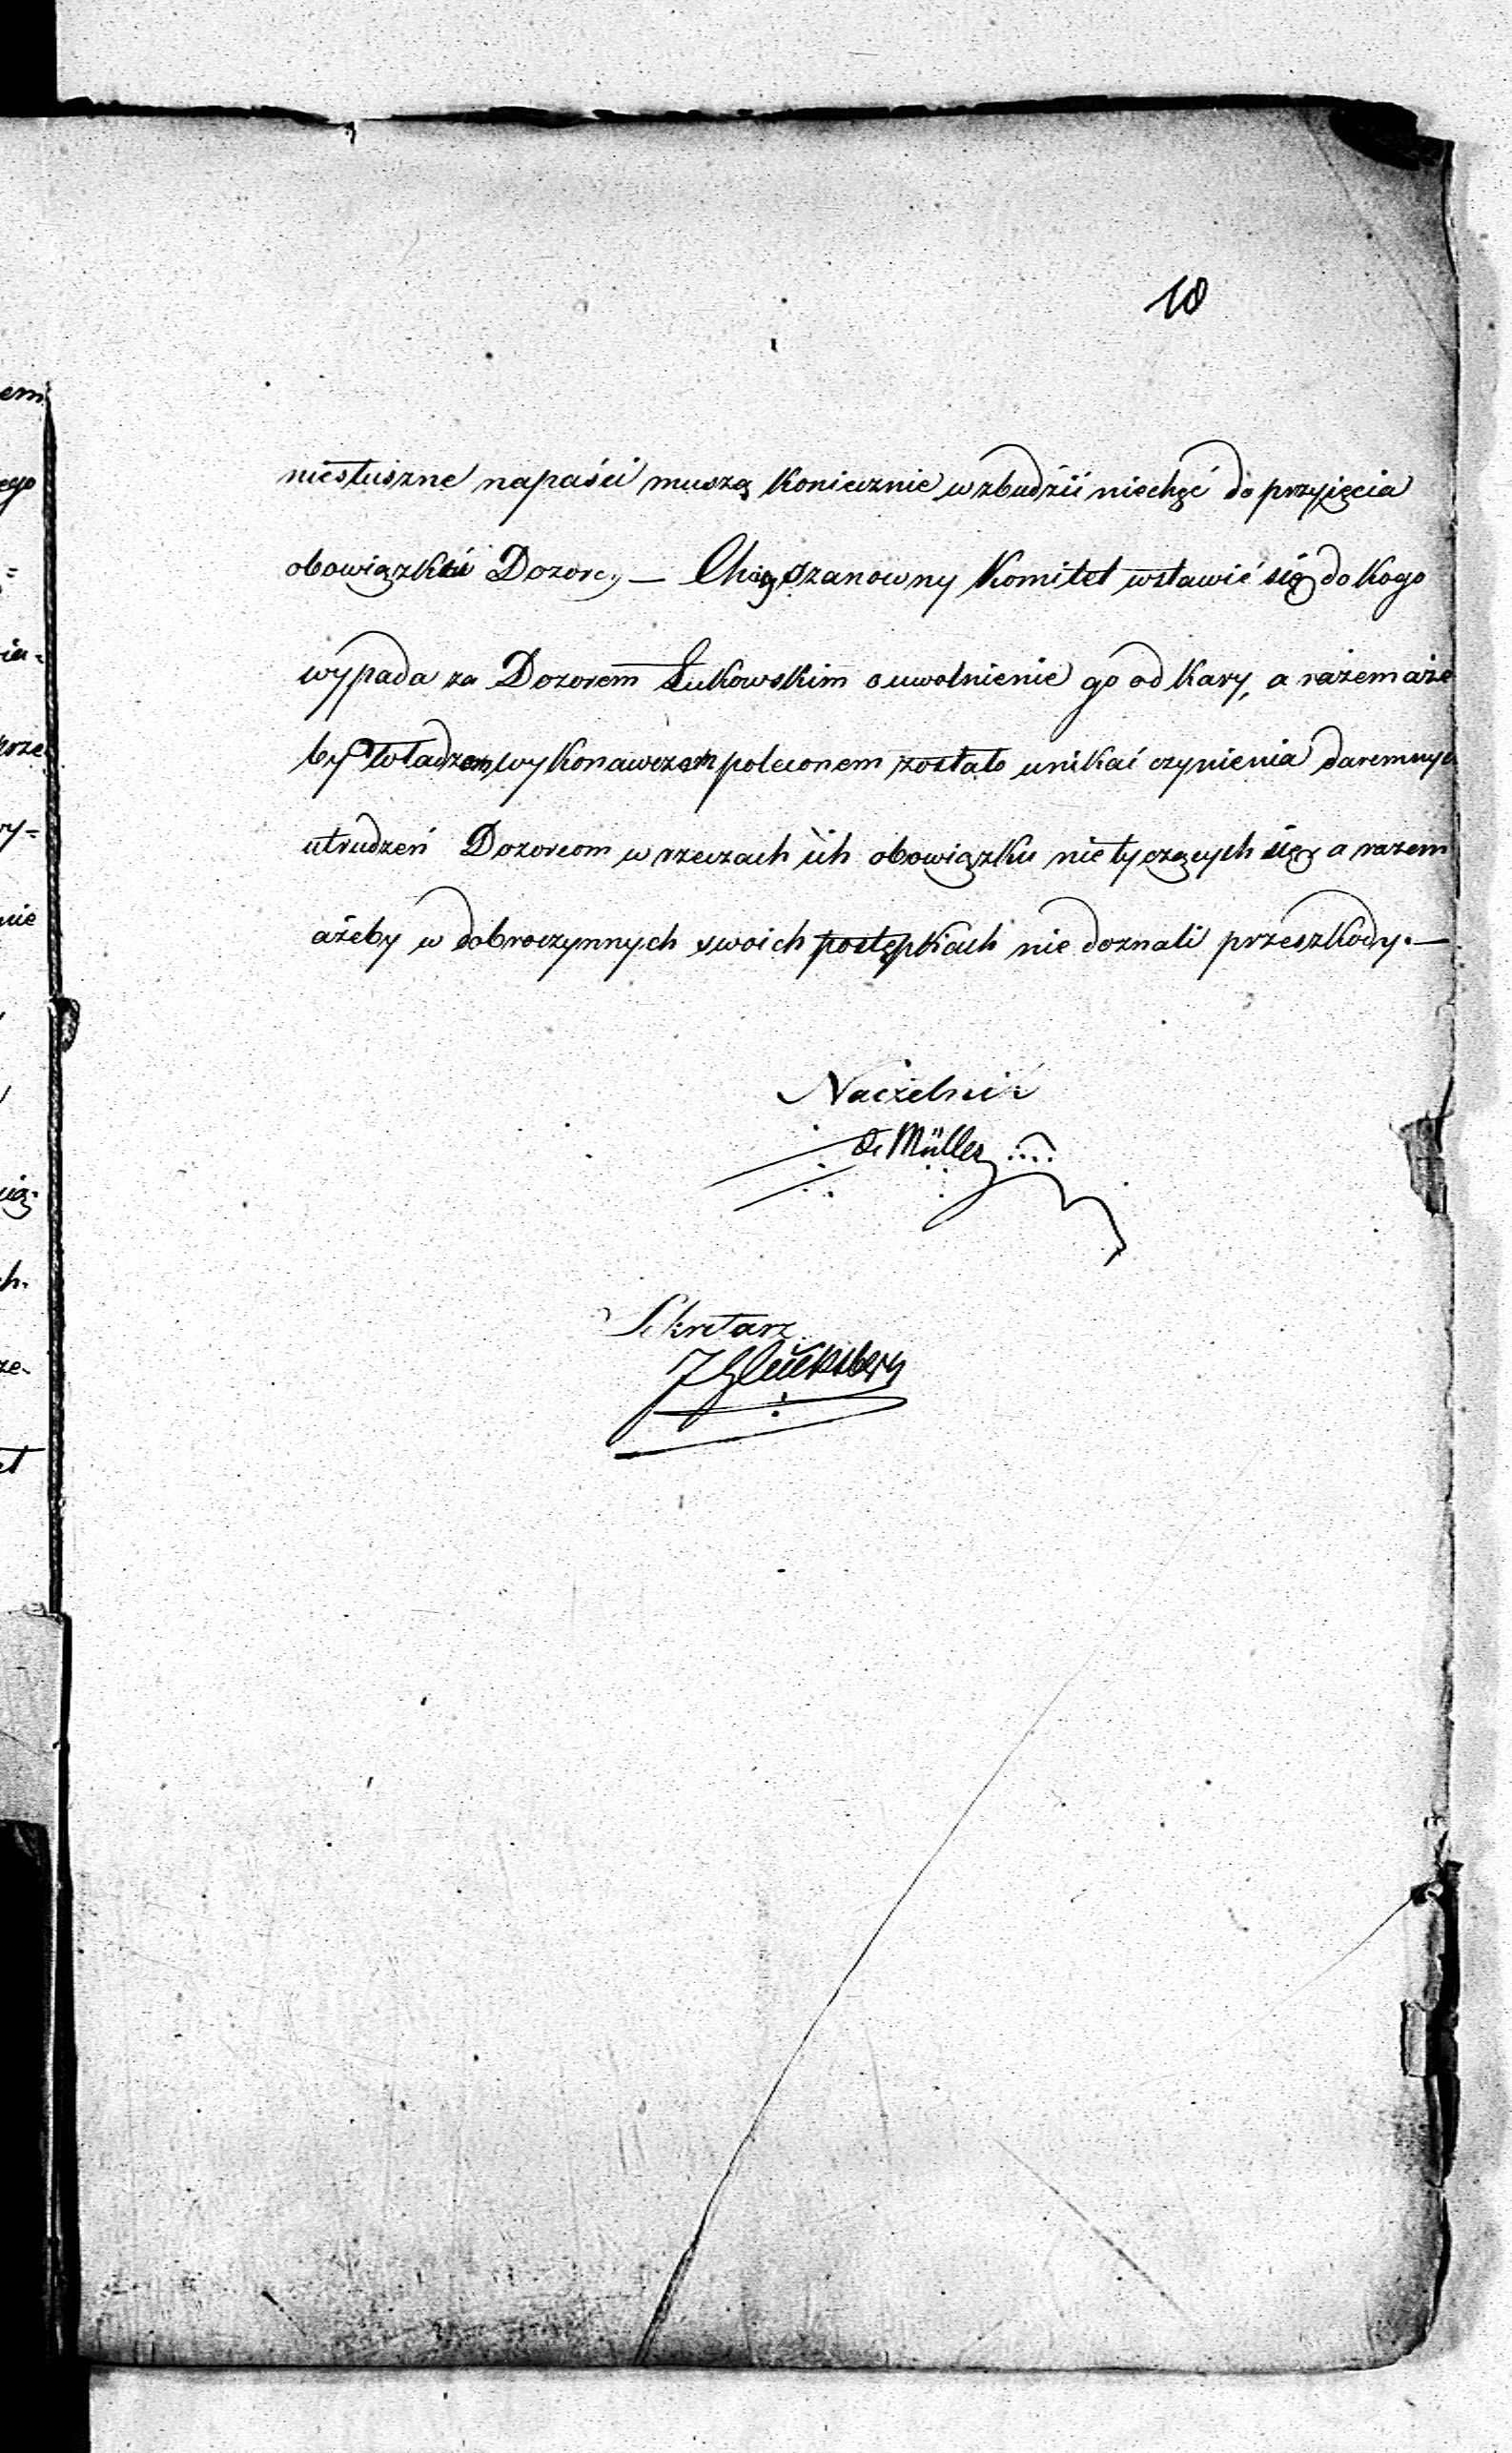 18
niesłuszne napaści muszą koniecznie wzbudzić niechęć do przyjęcia
obowiązku Dozorcy — Chciej Szanowny Komitet wstawić się do kogo
wypada za Dozorem Łukowskim o uwolnienie go od kary, a razem aże
by Władzom wykonawczem poleconem zostało unikać czynienia daremnych
utrudzeń Dozorcom w rzeczach ich obowiązku nie tyczących się, a razem
ażeby w dobroczynnych swoich postępkach nie doznali przeszkody. —
Naczelnik
de Müller
Sekretarz
J Glücksberg